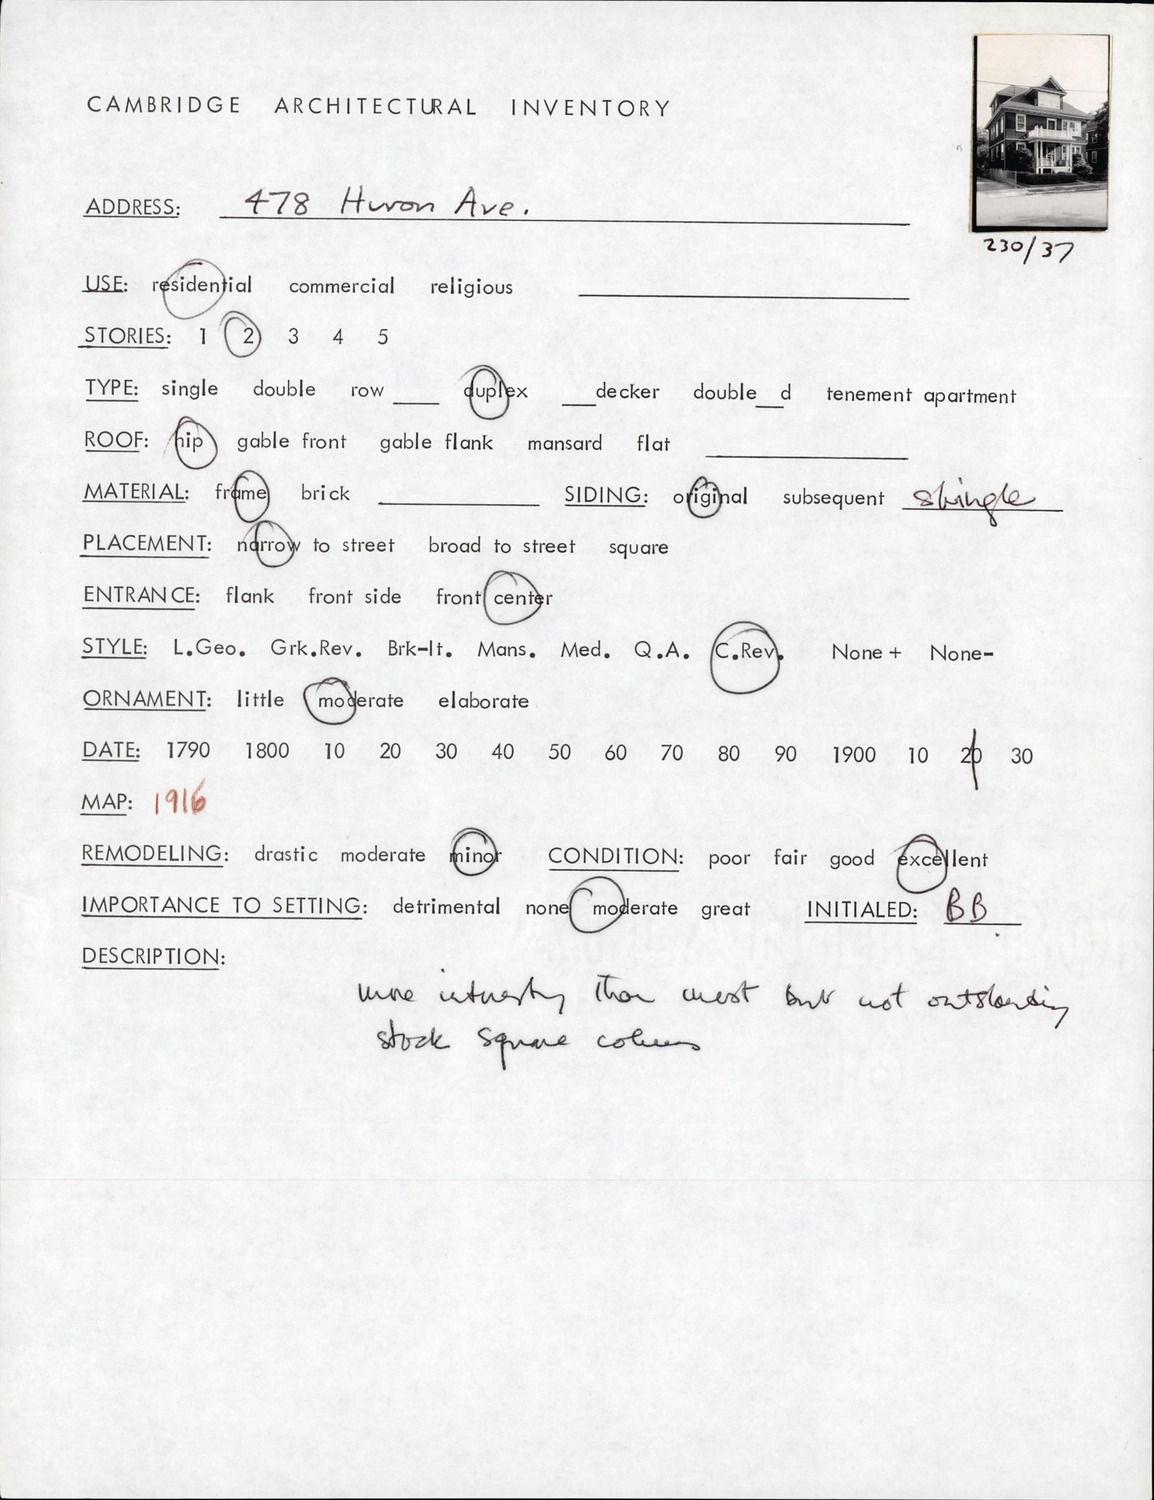 CAMBRIDGE ARCHITECTURAL INVENTORY
ADDRESS: 478 Huron Ave.
230/37
USE: residential commercial religious
STORIES: 1 2 3 4 5
TYPE: single double row ____ duplex ___decker double__d tenement apartment
ROOF: hip gable front gable flank mansard flat
MATERIAL: frame brick SIDING: original subsequent shingle
PLACEMENT: narrow to street broad to street square
ENTRANCE: flank front side front center
STYLE: L.Geo. Grk.Rev. Brk-It. Mans. Med. Q.A. C.Rev. None+ None-
ORNAMENT: little moderate elaborate
DATE: 1790 1800 10 20 30 40 50 60 70 80 90 1900 10 20 30
MAP: 1916
REMODELING: drastic moderate minor CONDITION: poor fair good excellent
IMPORTANCE TO SETTING: detrimental none moderate great INITIALED: BB
DESCRIPTION:
more interesting than most but not outstanding
stock square columns